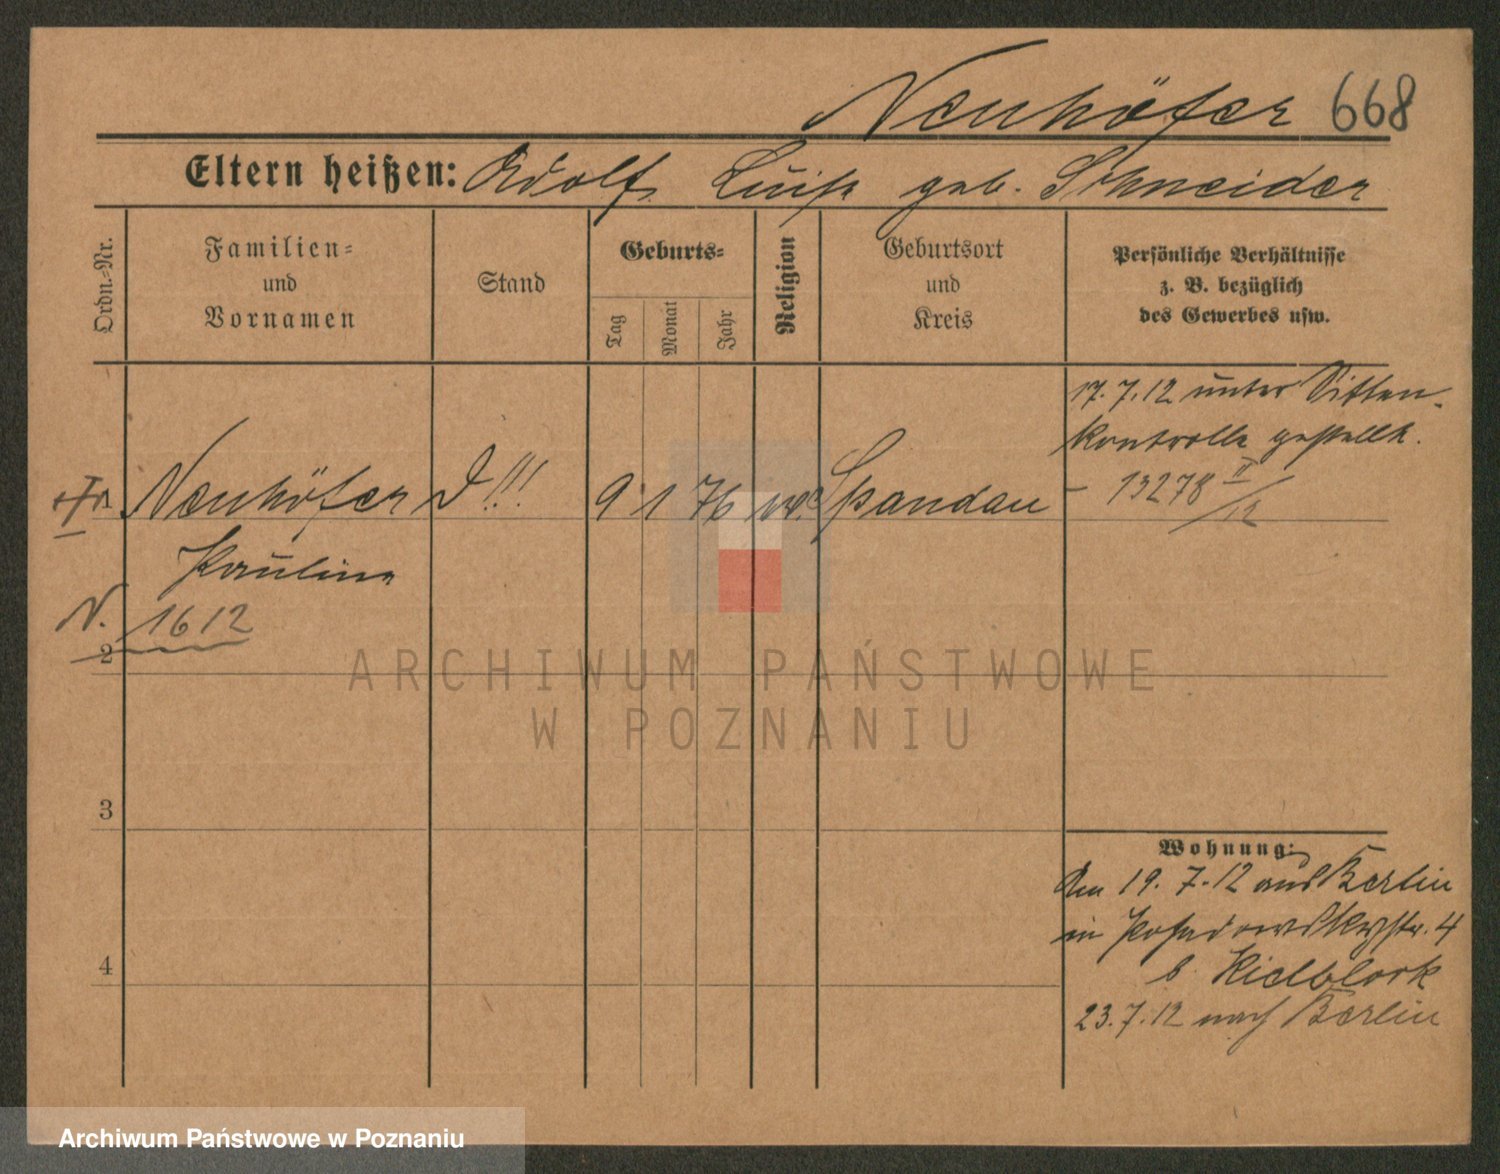 Neuhöfer 668
Eltern heißen: Adolf, Luise geb. Schneider
Ordn.-Nr.
Familien- und Vornamen
Stand
Geburts-
Tag
Monat
Jahr
Religion
Geburtsort und Kreis
Persönliche Verhältnisse
z. B. bezüglich
des Gewerbes usw.
17.7.12 unter Sitten-
kontrolle gestellt.
- 13278 II/12
1 Neuhöfer D!!! 9 1 76 Spandau
Pauline
N. 1612
2
3
4
Wohnung:
Am 19.7.12 aus Berlin
in Posadowskystr. 4
b. Kielblock
23.7.12 nach Berlin
ARCHIWUM PAŃSTWOWE
W POZNANIU
Archiwum Państwowe w Poznaniu